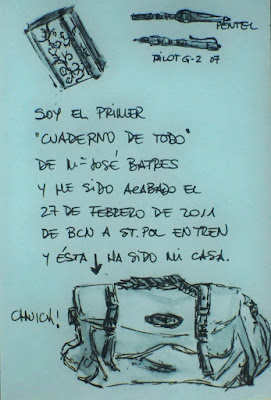 PENTEL
PILOT G-2 07
SOY EL PRIMER
"CUADERNO DE TODO"
DE Mª JOSÉ BATRES
Y HE SIDO ACABADO EL
27 DE FEBRERO DE 2011
DE BCN A ST. POL EN TREN
Y ÉSTA HA SIDO MI CASA.